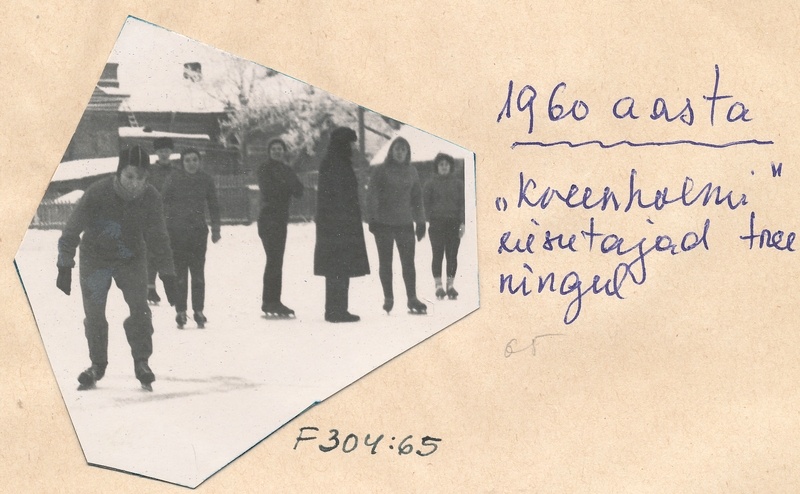 1960 aasta
„Kreenholmi"
uisutajad tree
ningul
65
F304:65